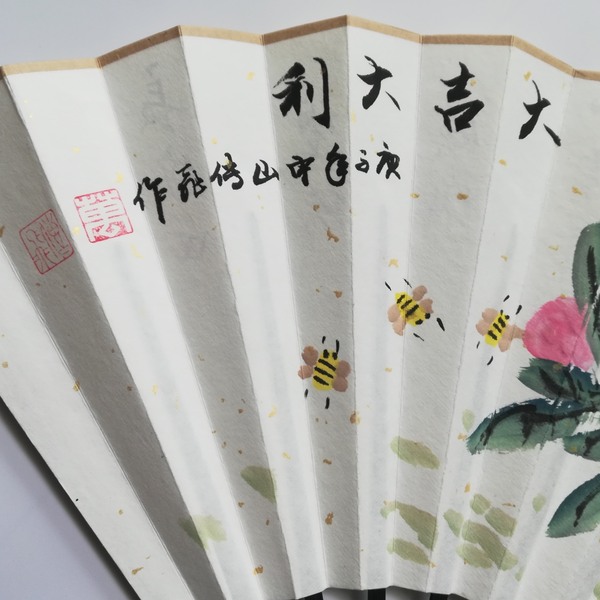 大吉大利
庚子年中山傅飛作